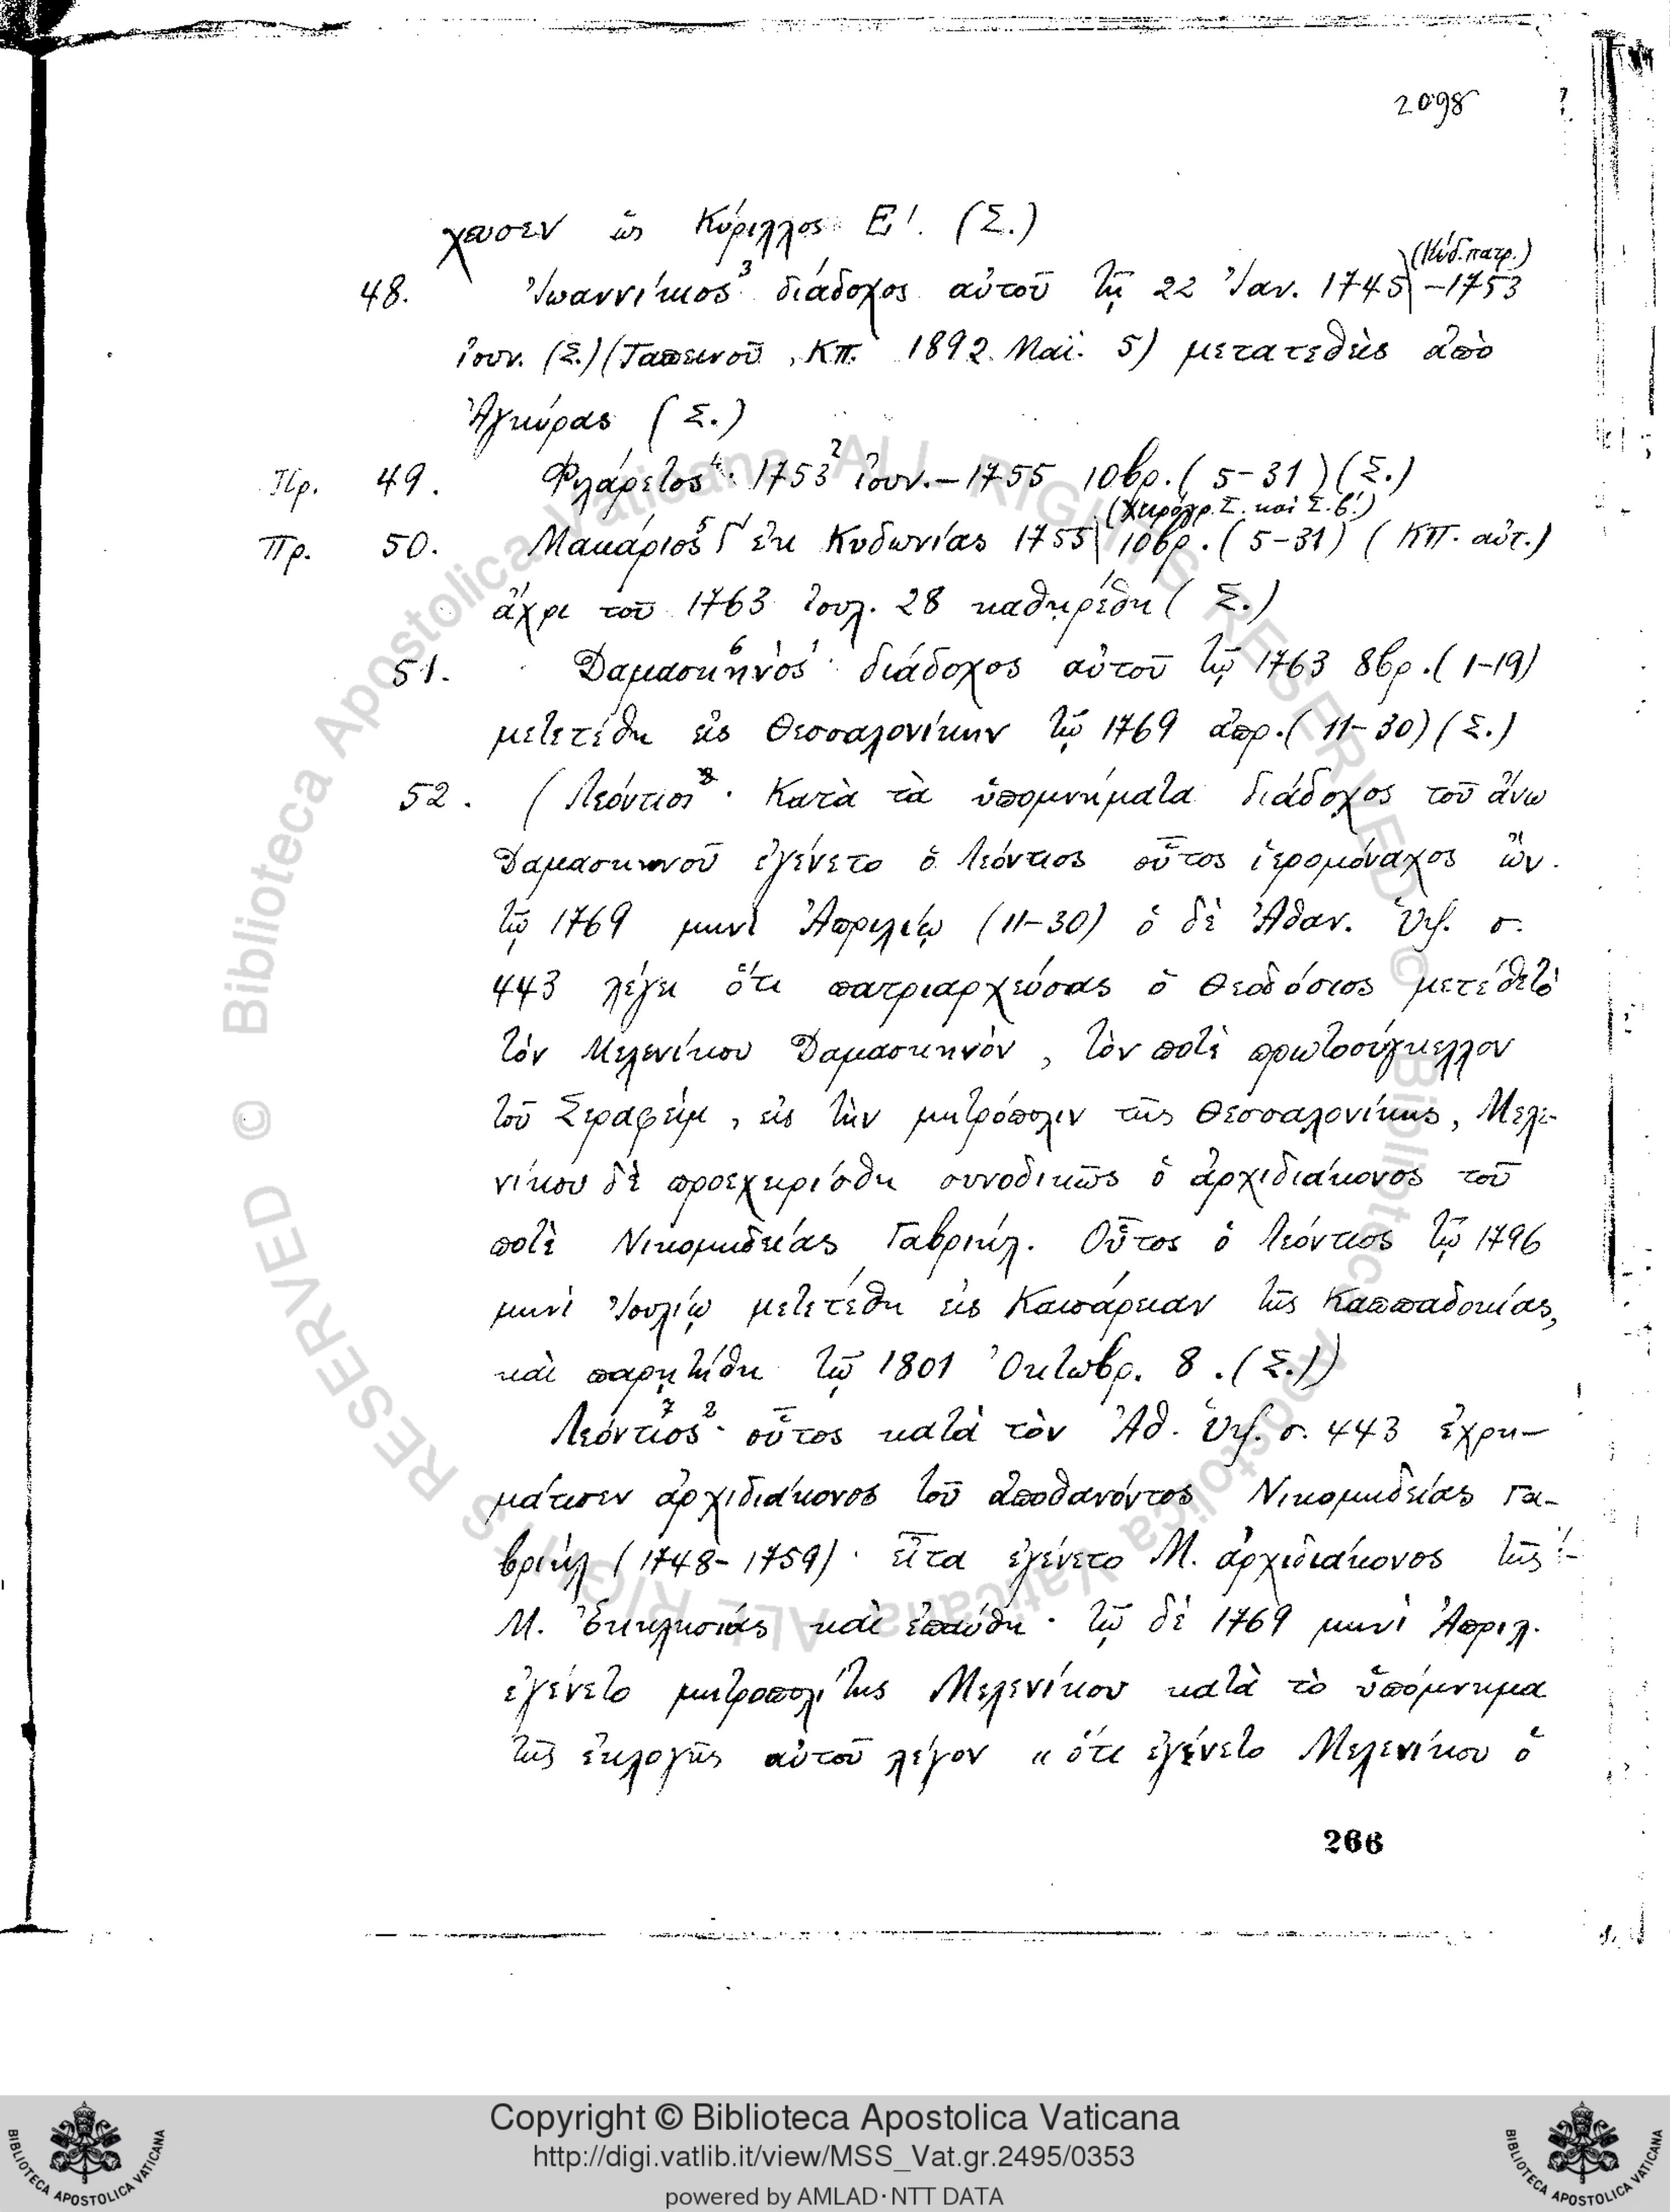 2098
χευσεν ὡς Κύριλλος Ε'. (Σ.)
(Κώδ. πατρ.)
48. Ἰωαννίκιος³ διάδοχος αὐτοῦ τῇ 22 Ἰαν. 1745 –1753
ἰουν. (Σ.) (Ταπεινοῦ, ΚΠ. 1892 Μαΐ. 5) μετατεθεὶς ἀπὸ
Ἀγκύρας (Σ.)
Πρ. 49. Φιλάρετος⁴· 1753² ἰουν.–1755 10βρ. (5–31) (Σ.)
(Χειρόγρ. Σ. καὶ Σ. β'.)
Πρ. 50. Μακάριος⁵ Γ' ἐκ Κυδωνίας 1755 10βρ. (5–31) (ΚΠ. αὐτ.)
ἄχρι τοῦ 1763 ἰουλ. 28 καθῃρέθη (Σ.)
51. Δαμασκηνὸς⁶· διάδοχος αὐτοῦ τῷ 1763 8βρ. (1–19)
μετετέθη εἰς Θεσσαλονίκην τῷ 1769 ἀπρ. (11–30) (Σ.)
52. (Λεόντιος· Κατὰ τὰ ὑπομνήματα διάδοχος τοῦ ἄνω
Δαμασκηνοῦ ἐγένετο ὁ Λεόντιος οὗτος ἱερομόναχος ὢν
τῷ 1769 μηνὶ Ἀπριλίῳ (11–30) ὁ δὲ Ἀθαν. Ὑψ. σ.
443 λέγει ὅτι πατριαρχεύσας ὁ Θεοδόσιος μετέθετο
τὸν Μελενίκου Δαμασκηνὸν, τὸν ποτὲ πρωτοσύγκελλον
τοῦ Σεραφεὶμ, εἰς τὴν μητρόπολιν τῆς Θεσσαλονίκης, Μελε-
νίκου δὲ προεχειρίσθη συνοδικῶς ὁ ἀρχιδιάκονος τοῦ
ποτὲ Νικομηδείας Γαβριήλ. Οὗτος ὁ Λεόντιος τῷ 1796
μηνὶ Ἰουλίῳ μετετέθη εἰς Καισάρειαν τῆς Καππαδοκίας,
καὶ παρῃτήθη τῷ 1801 Ὀκτωβρ. 8. (Σ.))
Λεόντιος⁷ ²· οὗτος κατὰ τὸν Ἀθ. Ὑψ. σ. 443 ἐχρη–
μάτισεν ἀρχιδιάκονος τοῦ ἀποθανόντος Νικομηδείας Γα–
βριήλ (1748–1759)· εἶτα ἐγένετο Μ. ἀρχιδιάκονος τῆς
Μ. Ἐκκλησίας καὶ ἐπαύθη· τῷ δὲ 1769 μηνὶ Ἀπριλ.
ἐγένετο μητροπολίτης Μελενίκου κατὰ τὸ ὑπόμνημα
τῆς ἐκλογῆς αὐτοῦ λέγον « ὅτι ἐγένετο Μελενίκου ὁ
266
© Biblioteca Apostolica Vaticana ALL RIGHTS RESERVED © Biblioteca Apostolica Vaticana ALL RIGHTS RESERVED
Copyright © Biblioteca Apostolica Vaticana
http://digi.vatlib.it/view/MSS_Vat.gr.2495/0353
powered by AMLAD·NTT DATA
BIBLIOTECA APOSTOLICA VATICANA
BIBLIOTECA APOSTOLICA VATICANA